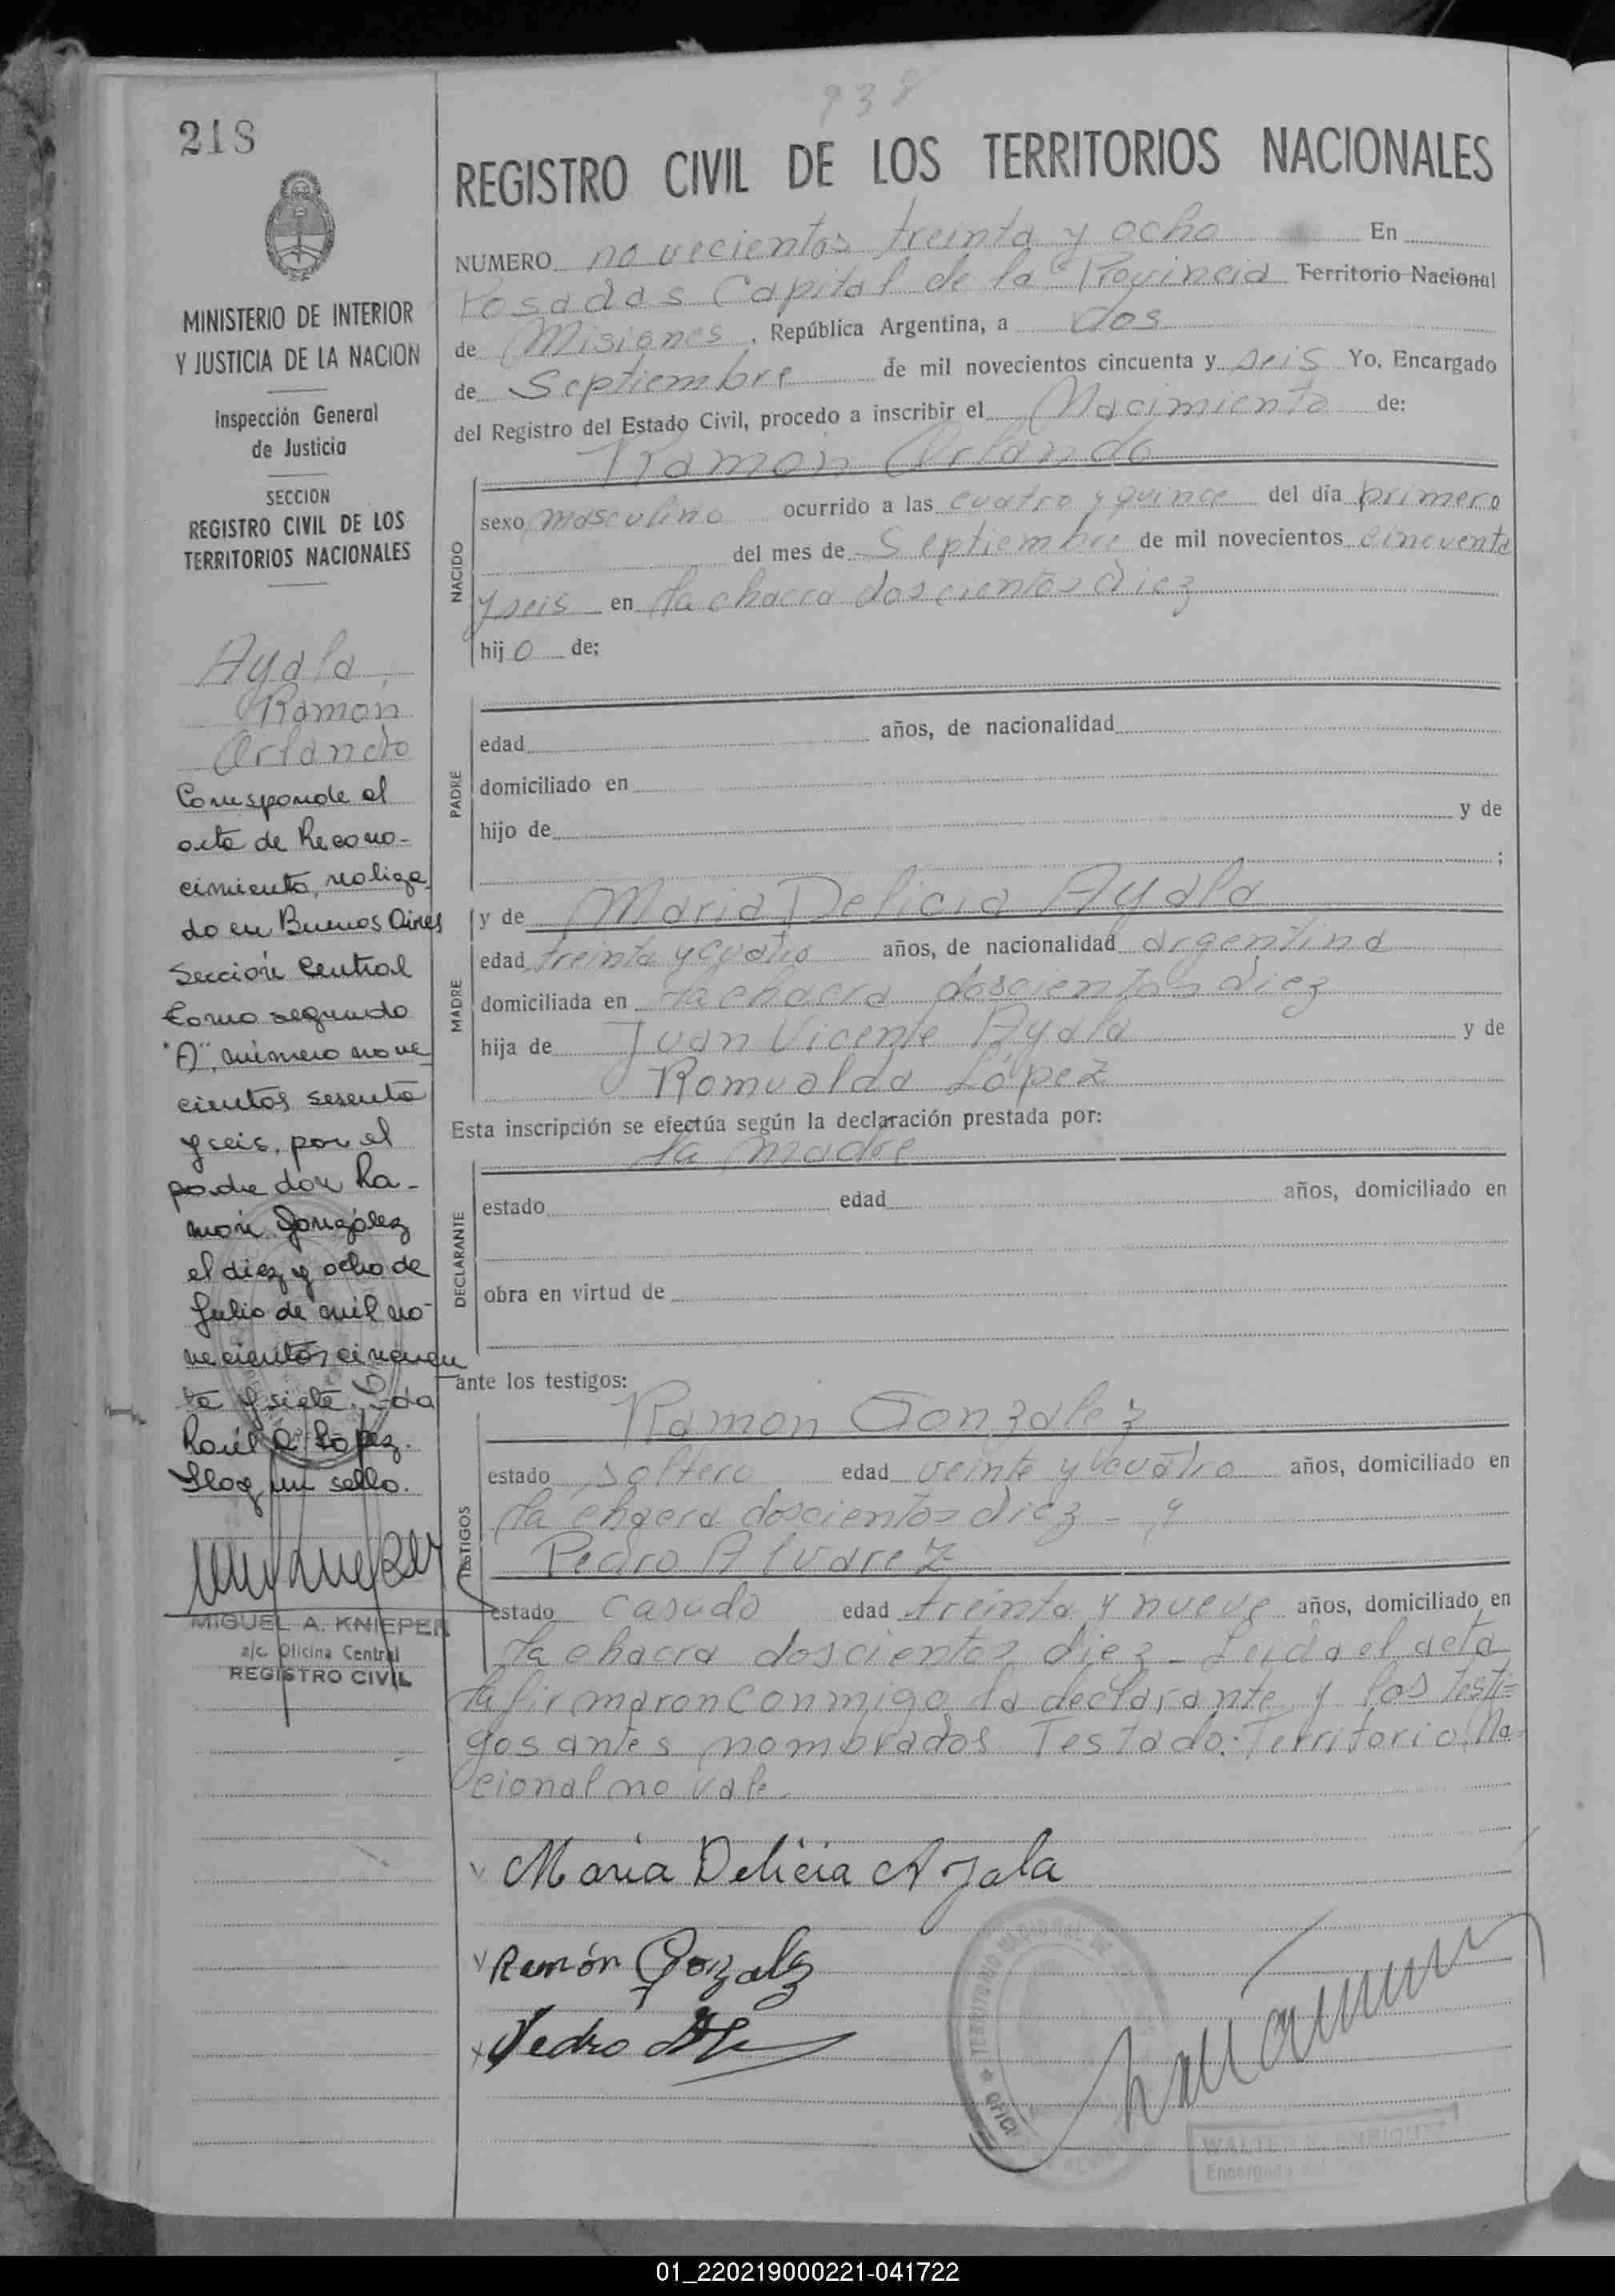 938
218
REGISTRO CIVIL DE LOS TERRITORIOS NACIONALES
MINISTERIO DE INTERIOR
Y JUSTICIA DE LA NACION
Inspección General
de Justicia
SECCION
REGISTRO CIVIL DE LOS
TERRITORIOS NACIONALES
Ayala,
Ramon
Orlando
Corresponde al
acta de Recono-
cimiento, realiza
do en Buenos Aires
Sección Central
Tomo segundo
"A", número nove
cientos sesenta
y seis, por el
padre don Ra-
món González
el diez y ocho de
Julio de mil no-
vecientos cincuen
ta y siete.
Raúl A. López.
Hay un sello.
MIGUEL A. KNIEPER
a/c. Oficina Central
REGISTRO CIVIL
NUMERO novecientos treinta y ocho En
Posadas Capital de la Provincia Territorio Nacional
de Misiones, República Argentina, a dos
de Septiembre de mil novecientos cincuenta y seis Yo, Encargado
del Registro del Estado Civil, procedo a inscribir el Nacimiento de:
Ramon Orlando
NACIDO
sexo masculino ocurrido a las cuatro y quince del día primero
del mes de Septiembre de mil novecientos cincuenta
y seis en la chacra doscientos diez
hijo de;
PADRE
edad años, de nacionalidad
domiciliado en
hijo de y de
;
MADRE
y de Maria Delicia Ayala
edad treinta y cuatro años, de nacionalidad argentina
domiciliada en la chacra doscientos diez
hija de Juan Vicente Ayala y de
Romualda López
Esta inscripción se efectúa según la declaración prestada por:
la madre
DECLARANTE
estado edad años, domiciliado en
obra en virtud de
ante los testigos:
TESTIGOS
Ramon Gonzalez
estado soltero edad veinte y cuatro años, domiciliado en
la chacra doscientos diez - y
Pedro Alvarez
estado casado edad treinta y nueve años, domiciliado en
la chacra doscientos diez - Leida el acta
la firmaron conmigo la declarante y los testi=
gos antes nombrados Testado: Territorio Na=
cional no vale.
Maria Delicia Ayala
Ramón Gonzalez
Pedro
TERRITORIO NACIONAL DE
OFICI
WALTER
Encargado del
01_220219000221-041722